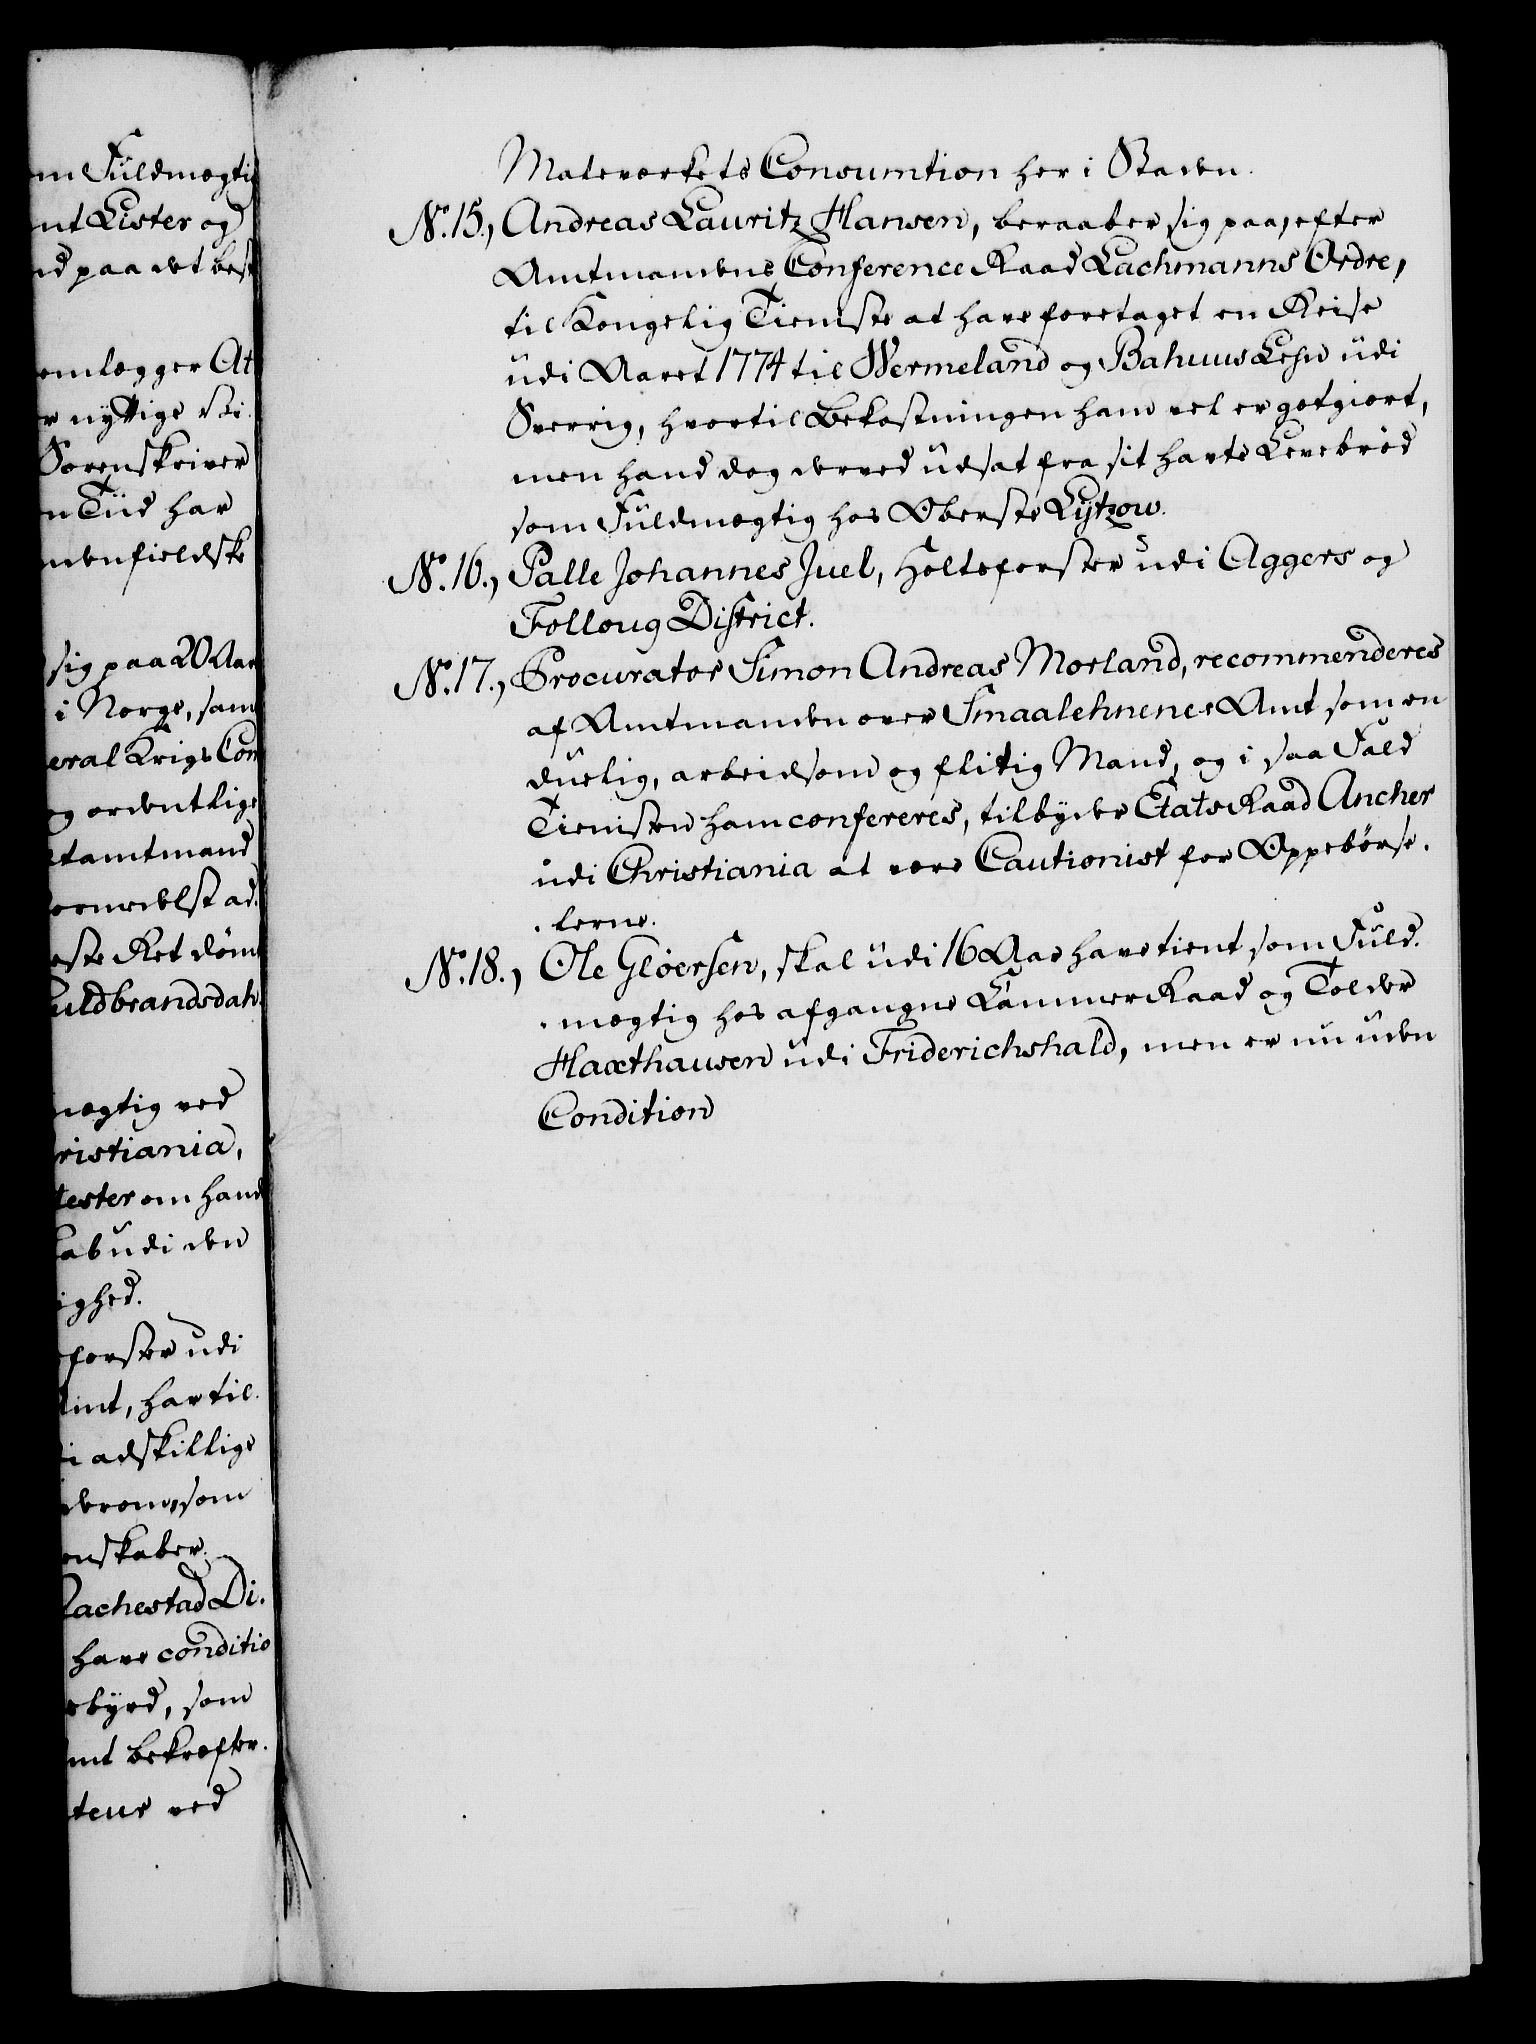 em Fuldmægtig
mt Lister og
nd paa det best
emlægger At
r nyttige
Sorenskriver
n Tiid har
denfieldske
sig paa 20 Aar
i Norge, samt
eral Krigs Com
og ordentlige
tamtmand
ad.
ste Ret døm
uldbrandsdah
mægtig ved
ristiania,
tester om hand
ab udi den
ighed.
forster udi
Amt, har til.
i adskillige
derom, som
enskaber.
Rachestad Di.
have conditio
byrd, som
mt bekræfter.
teur ved
Mateværkets Consumtion her i Staden.
No. 15., Andreas Lauritz Hansen, beraaber sig paa, efter
Amtmandens Conference Raad Lachmanns Ordre,
til Kongelig Tieniste at have foretaget en Reise
udi Aaret 1774 til Wermeland og Bahuus Lehn udi
Sverrig, hvortil Bekostningen ham vel er gotgiort,
men hand dog derved udsat fra sit havte Levebrød
som Fuldmægtig hos Oberste Lützow.
No. 16., Palle Johannes Juel, Holtsforster udi Aggers og
Follougs District.
No. 17., Procurator Simon Andreas Morland, recommenderes
af Amtmanden over Smaalehnenes Amt som en
duelig, arbeidsom og flitig Mand, og i saa Fald
Tienisten ham confereres, tilbyder Etats Raad Ancher
udi Christiania at være Cautionist for Oppebørse.
. lerne.
No. 18., Ole Gløersen, skal udi 16 Aar have tient som Fuld.
. mægtig hos afgangne Cammer Raad og Tolder
Haxthausen udi Friderichshald, men er nu uden
Condition